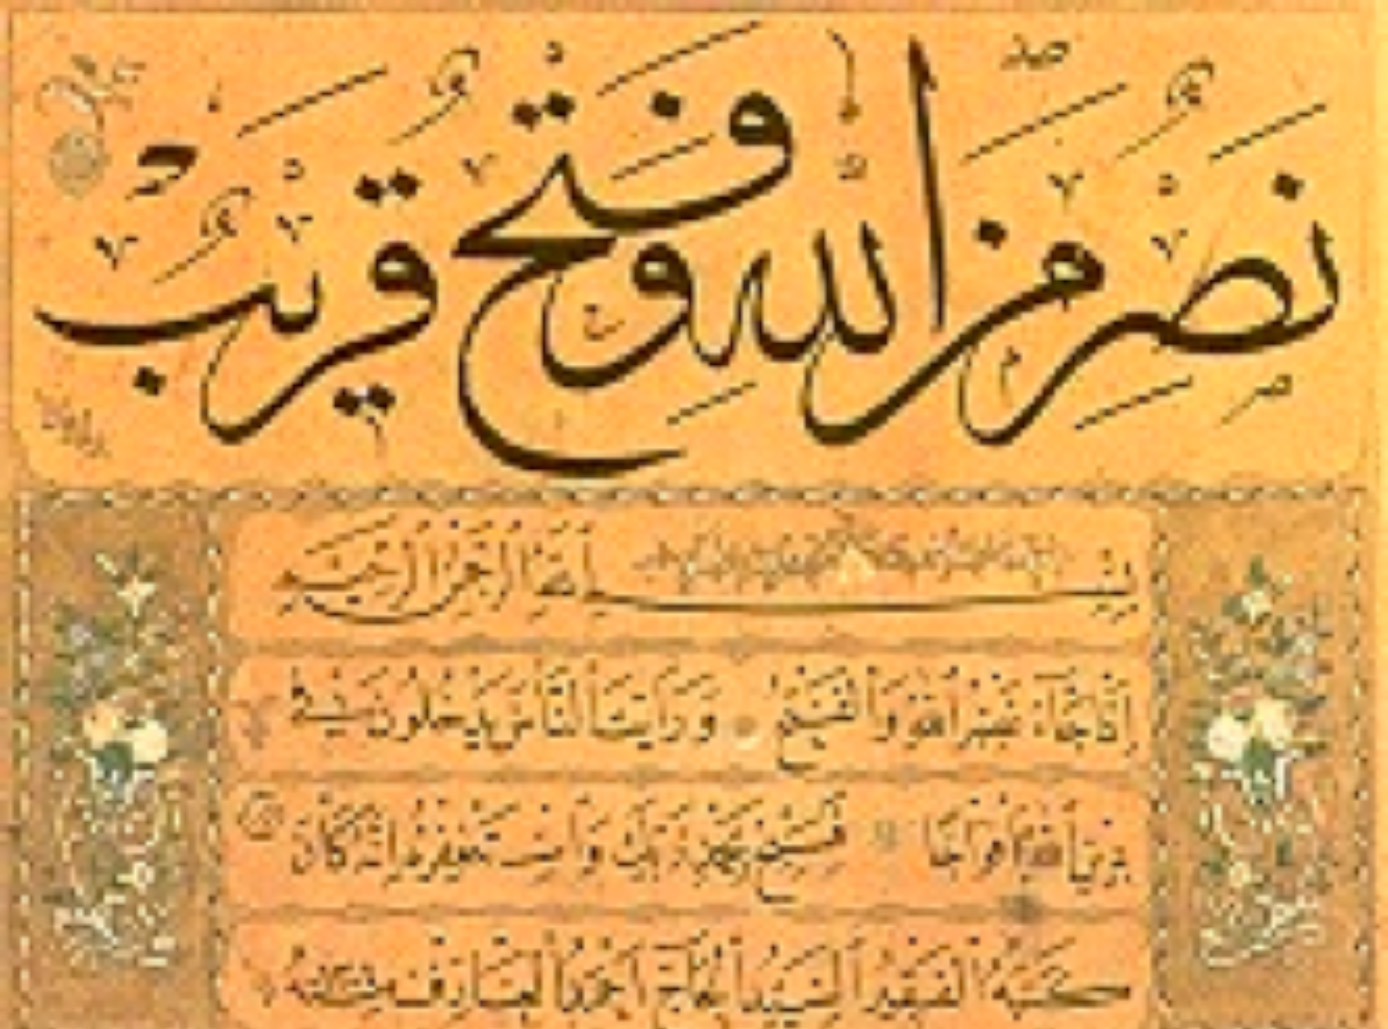 نَصْرٌ مِنَ اللهِ وَفَتْحٌ قَرِيبٌ
بِسْمِ اللهِ الرَّحْمٰنِ الرَّحِيمِ
إِذَا جَاءَ نَصْرُ اللهِ وَالْفَتْحُ وَرَأَيْتَ النَّاسَ يَدْخُلُونَ فِي
دِينِ اللهِ أَفْوَاجًا فَسَبِّحْ بِحَمْدِ رَبِّكَ وَاسْتَغْفِرْهُ إِنَّهُ كَانَ
كتبه الفقير السيد الحاج احمد العارف